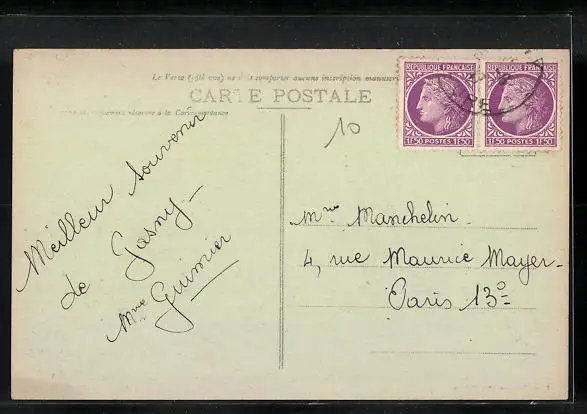 Le Verso (côté vue) ne doit comporter aucune inscription manuscrite
CARTE POSTALE
réservée à la Correspondance
RÉPUBLIQUE FRANÇAISE
1F50 POSTES 1F50
RÉPUBLIQUE FRANÇAISE
1F50 POSTES 1F50
10
Meilleur Souvenir
de Gasny –
Mme Guimier
Mme Manchelin.
4, rue Maurice Mayer –
Paris 13°